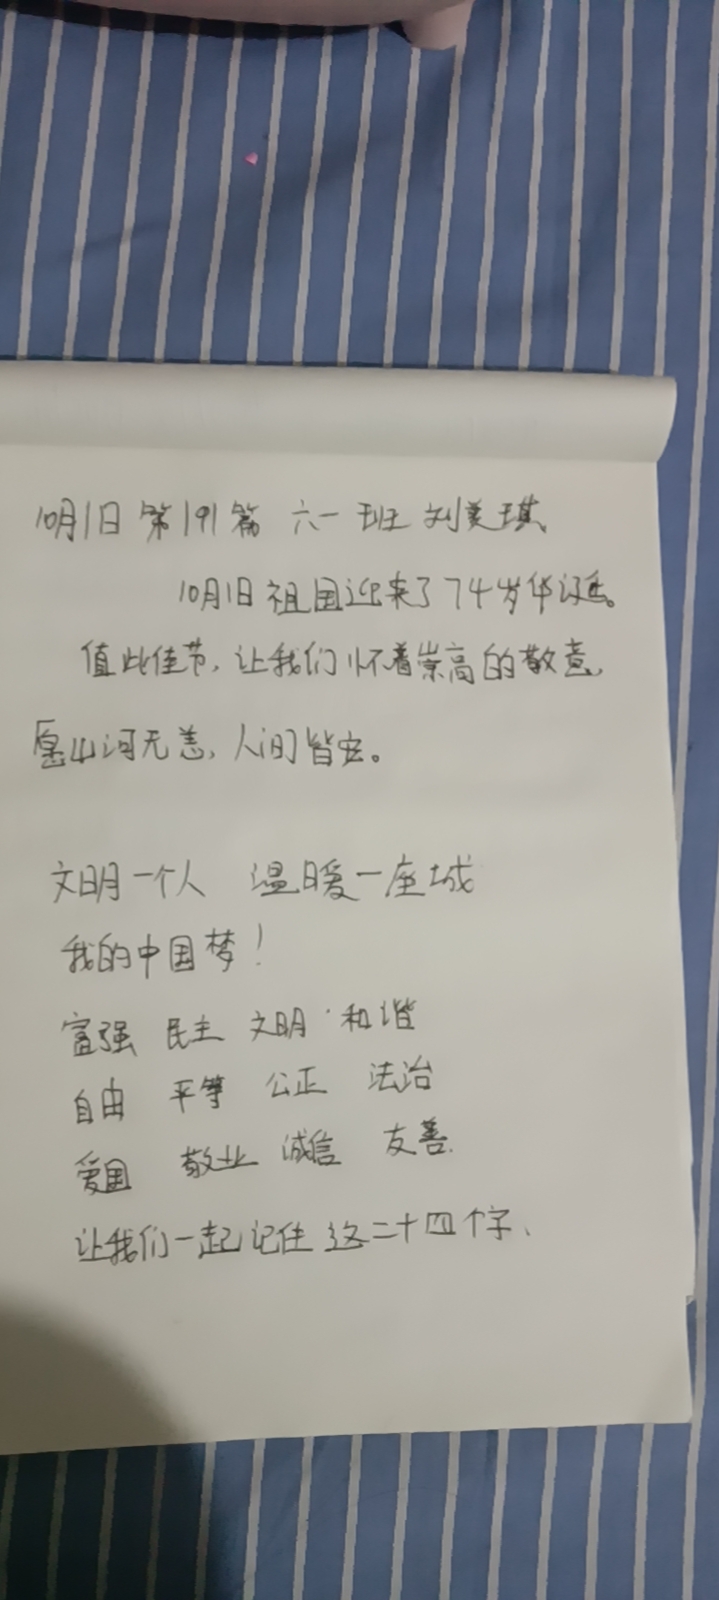 10月1日 第191篇 六一班 刘美琪
10月1日祖国迎来了74岁华诞。
值此佳节,让我们怀着崇高的敬意,
愿山河无恙,人间皆安。
文明一个人 温暖一座城
我的中国梦!
富强 民主 文明·和谐
自由 平等 公正 法治
爱国 敬业 诚信 友善.
让我们一起记住这二十四个字、